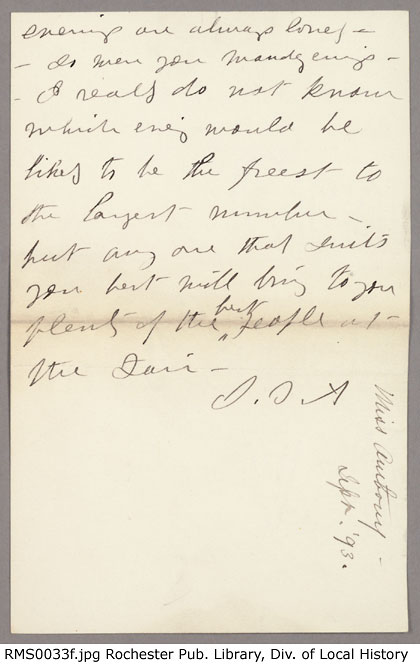 evenings are always lovely —
— as were your mondayenings —
— I really do not know
which eveing would be
likely to be the freest to
the largest number —
but any one that suits
you best will bring to you
plenty of the best people at
the Fair —
S. B. A
Miss Anthony —
Sept. '93.
RMS0033f.jpg Rochester Pub. Library, Div. of Local History